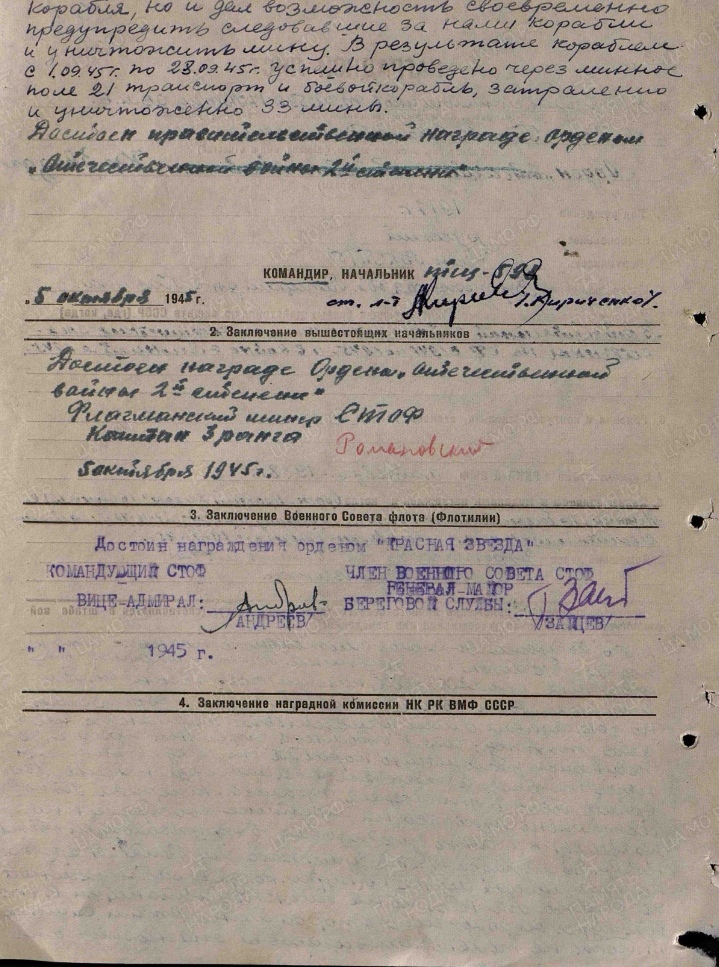 корабля, но и дал возможность своевременно
предупредить следовавшие за нами корабли
и уничтожить мину. В результате кораблем
с 1.09.45г. по 28.09.45г. проведено через минное
поле 21 транспорт и боевой корабль, затралено
и уничтоженно 33 мины.
Достоен правительственной награде орденом
„Отечественной войны 2й степени"
КОМАНДИР, НАЧАЛЬНИК
„5 октября 1945г.
ст. л-т /Кириченко/.
2. Заключение вышестоящих начальников
Достоен награде Ордена „Отечественной
войны 2й степени"
Флагманский минер СТОФ
Капитан 3 ранга
Романовский
5 октября 1945г.
3. Заключение Военного Совета флота (Флотилии)
Достоин награждения орденом "КРАСНАЯ ЗВЕЗДА"
КОМАНДУЮЩИЙ СТОФ
ВИЦЕ-АДМИРАЛ:
/АНДРЕЕВ/
ЧЛЕН ВОЕННОГО СОВЕТА СТОФ
ГЕНЕРАЛ-МАЙОР
БЕРЕГОВОЙ СЛУЖБЫ:
/ЗАЙЦЕВ/
" " 1945 г.
4. Заключение наградной комиссии НК РК ВМФ СССР